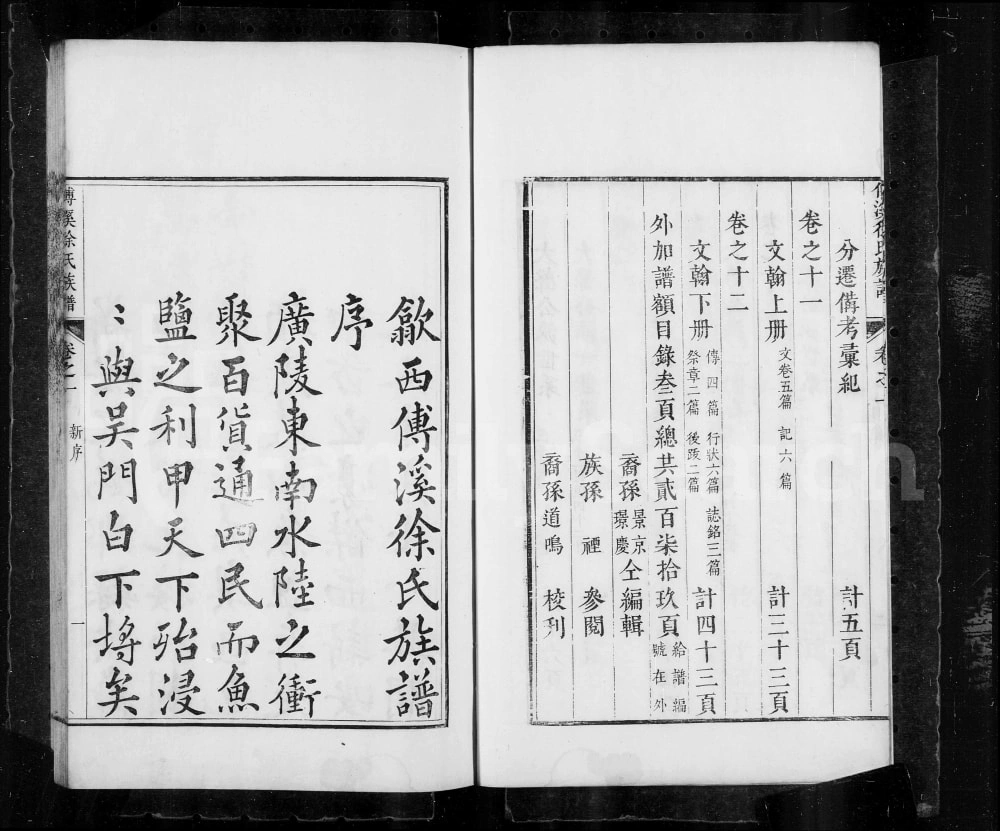 分遷備考彙紀 計五頁
卷之十一
文翰上册 文卷五篇 記六篇 計三十三頁
卷之十二
文翰下册 傳四篇 行狀六篇 誌銘三篇 祭章二篇 後跋二篇 計四十三頁
外加譜額目錄叁頁總共貳百柒拾玖頁 給譜編號在外
裔孫 景京 璟慶 仝編輯
族孫 禋 參閱
裔孫 道鳴 校刊
歙西傅溪徐氏族譜
序
廣陵東南水陸之衝
聚百貨通四民而魚
鹽之利甲天下殆浸
〻與吳門白下埒矣
傅溪徐氏族譜 卷之一 新序 一